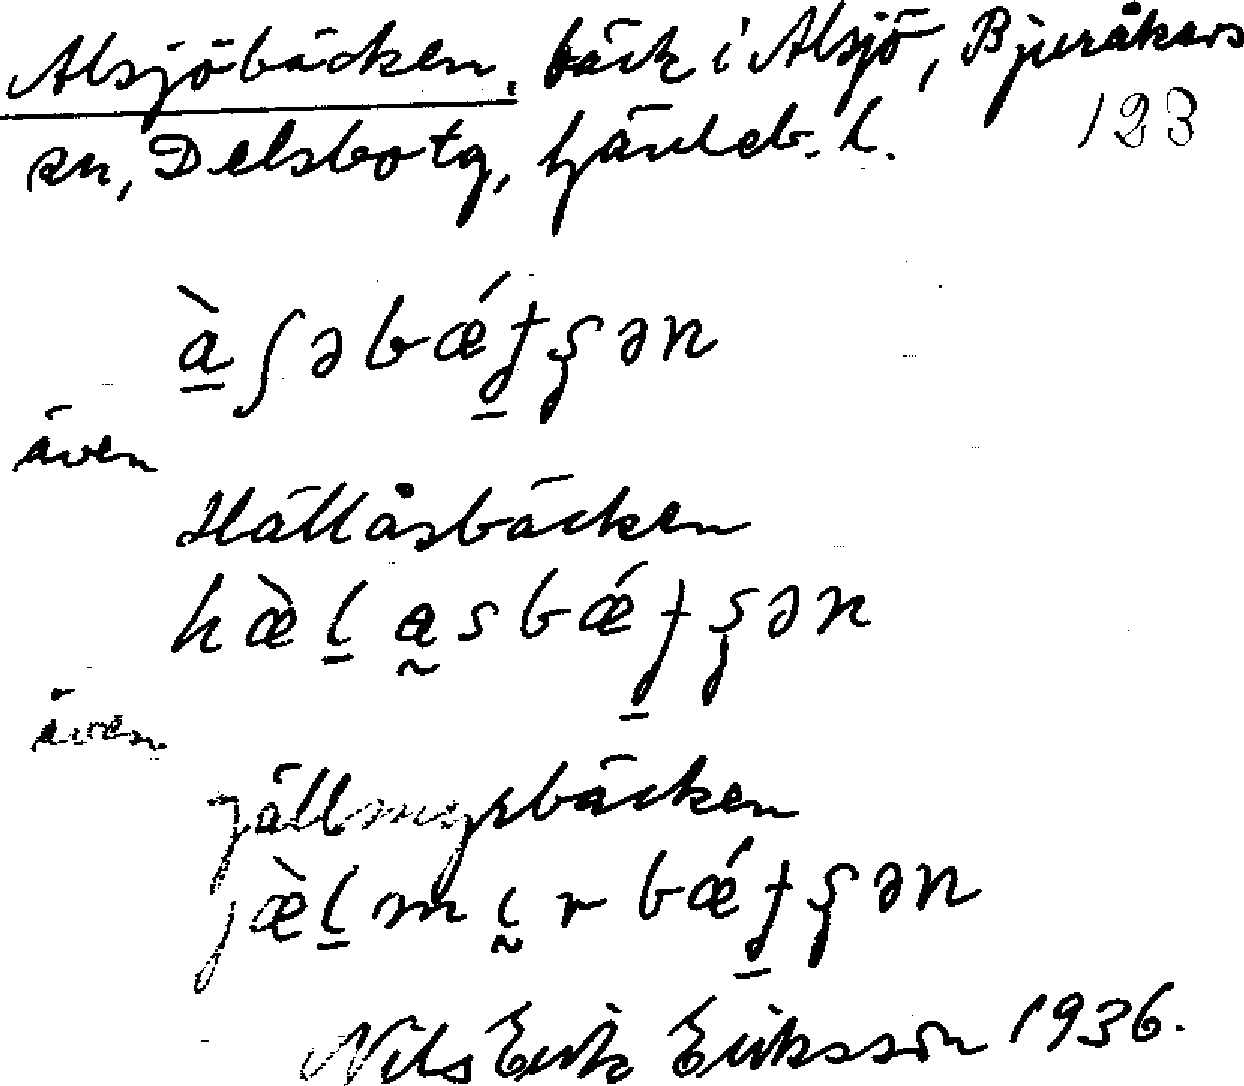 Alsjöbäcken, bäck i Alsjö, Bjuråkers
123
sn, Delsbo tg, Hävleb. l.
à̱ʃəbǽɟ̱ʂən
även
Hällåsbäcken
hæ̀ḻa̰sbǽɟ̱ʂən
även
Jällmyrbäcken
jæ̀ḻmḭrbǽɟ̱ʂən
Nils Erik Eriksson 1936.